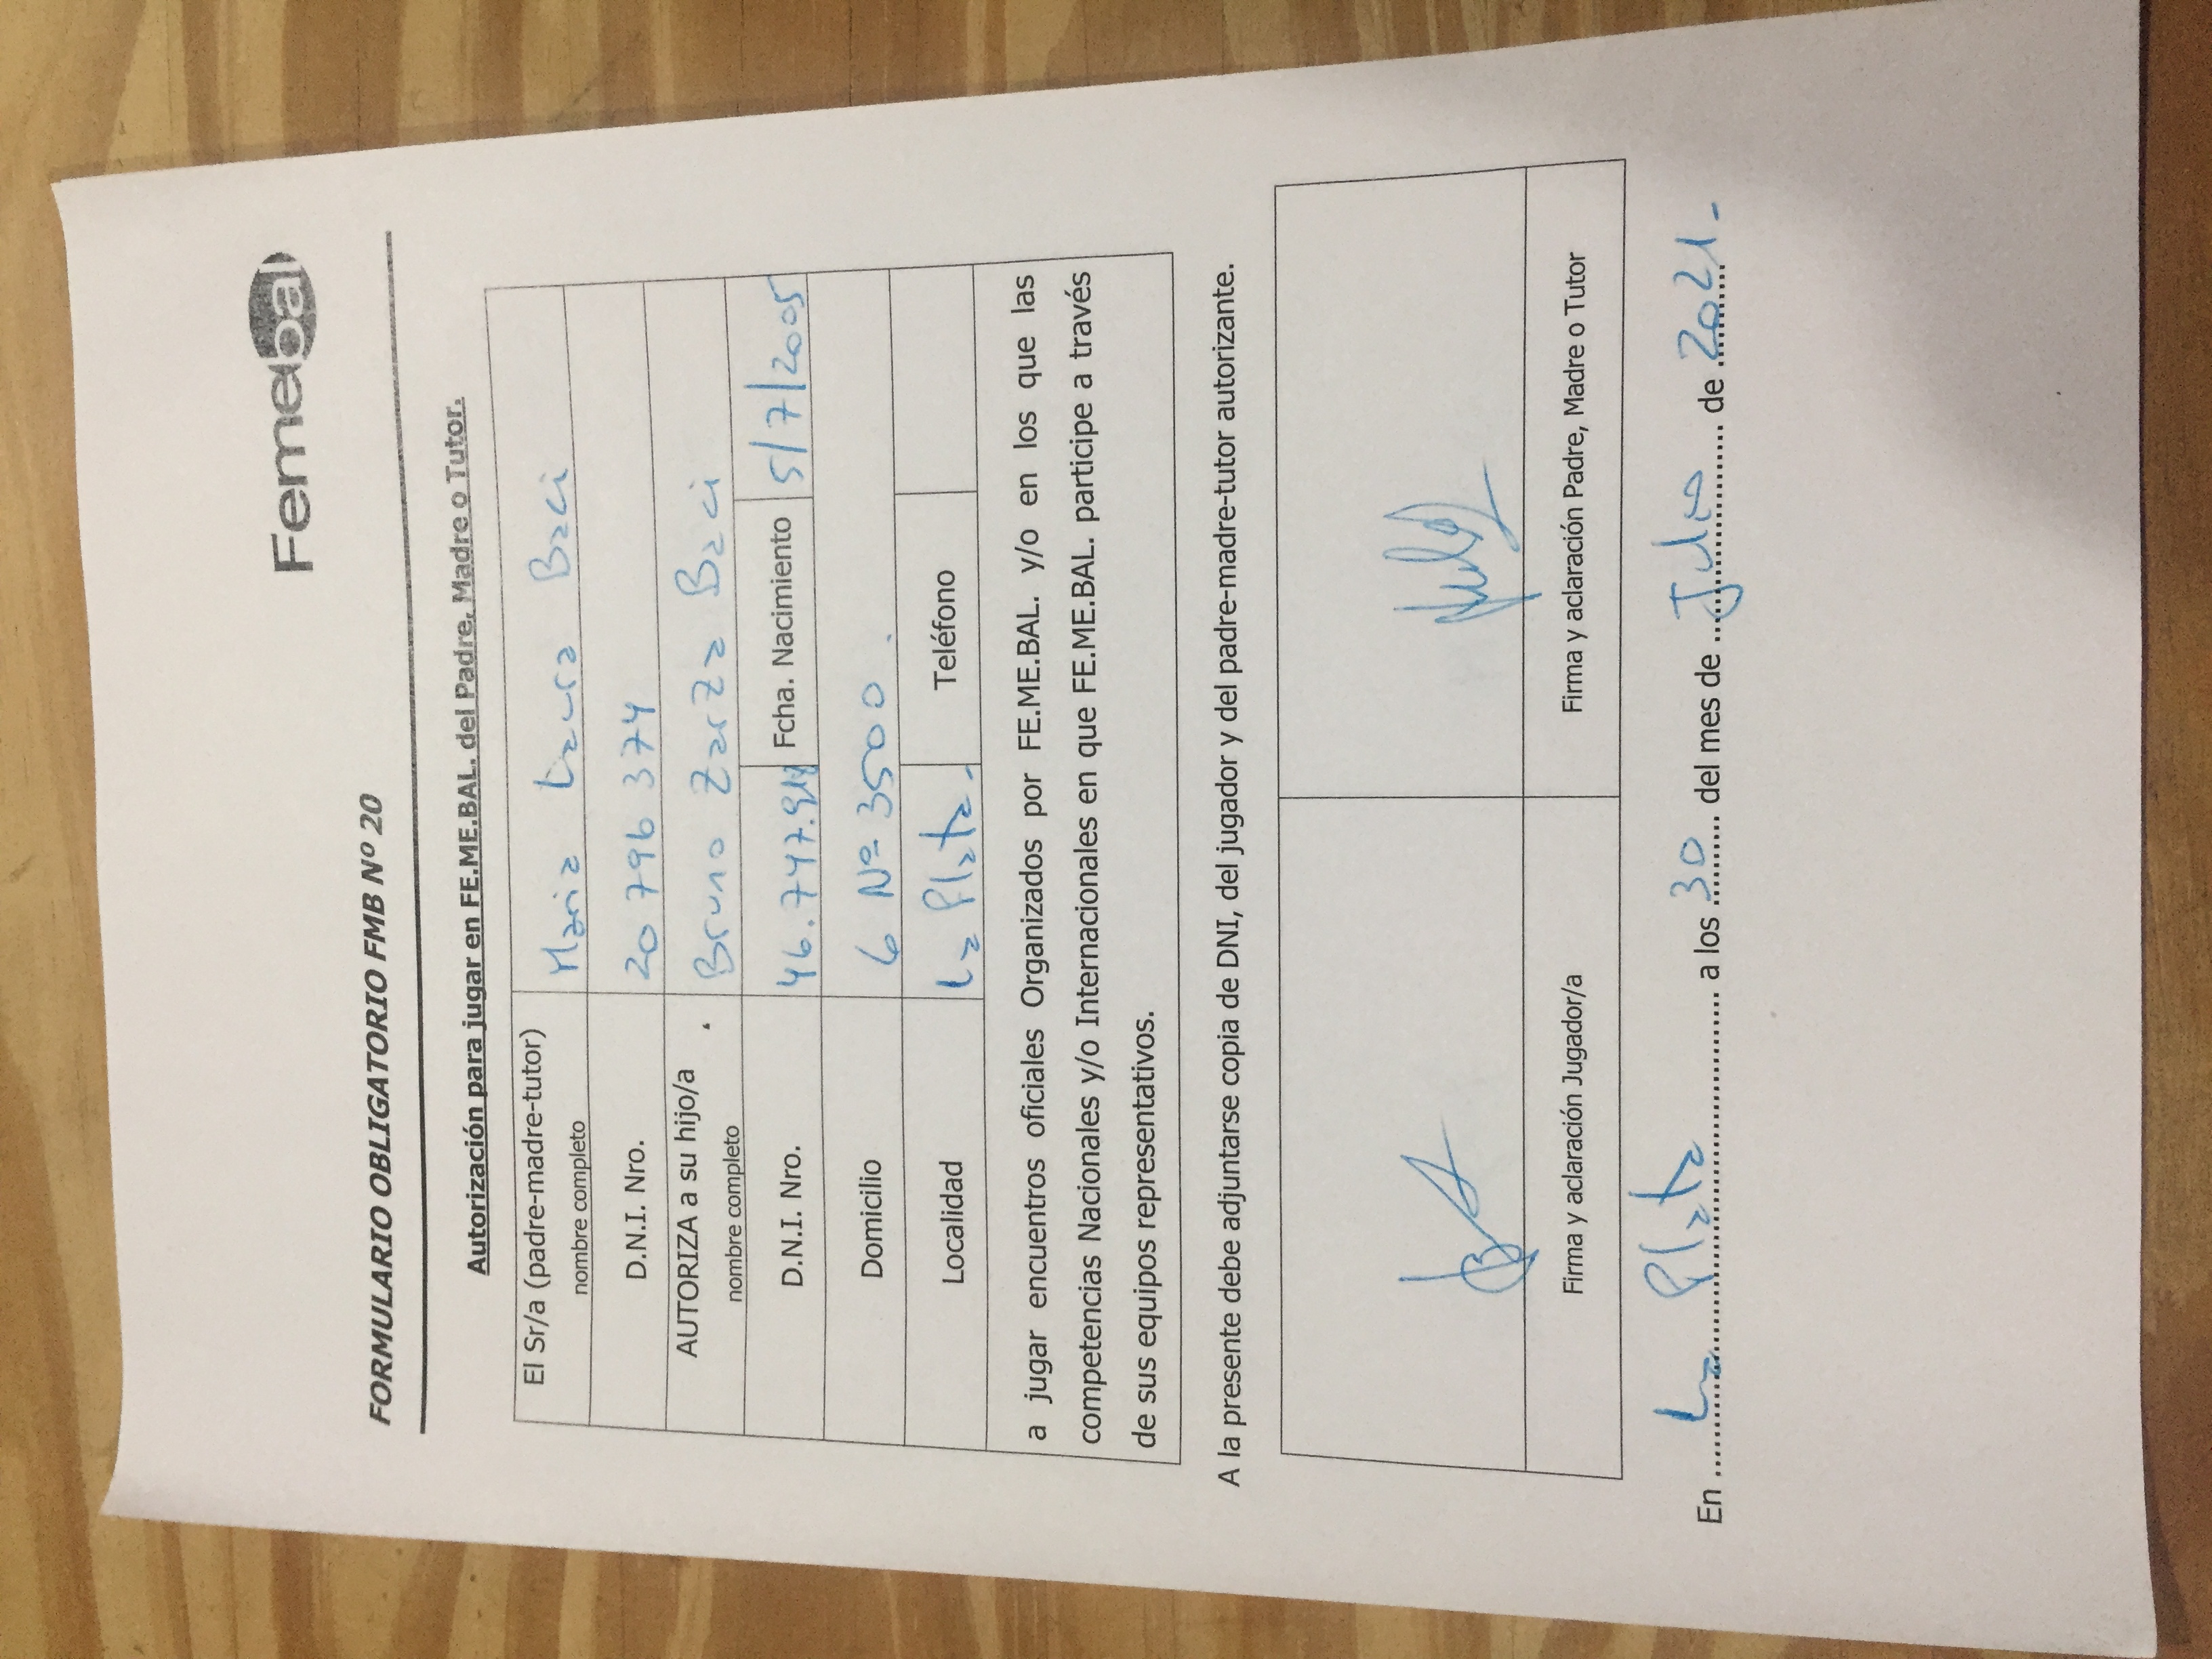 Femebal
FORMULARIO OBLIGATORIO FMB Nº 20
Autorización para jugar en FE.ME.BAL. del Padre, Madre o Tutor.
El Sr/a (padre-madre-tutor) nombre completo Maria Laura Baci
D.N.I. Nro. 20 796 374
AUTORIZA a su hijo/a nombre completo Bruno Zarza Baci
D.N.I. Nro. 46.747. Fcha. Nacimiento 5/7/2005
Domicilio 6 Nº 3500.
Localidad La Plata. Teléfono
a jugar encuentros oficiales Organizados por FE.ME.BAL. y/o en los que las
competencias Nacionales y/o Internacionales en que FE.ME.BAL. participe a través
de sus equipos representativos.
A la presente debe adjuntarse copia de DNI, del jugador y del padre-madre-tutor autorizante.
Firma y aclaración Jugador/a Firma y aclaración Padre, Madre o Tutor
En La Plata a los 30 del mes de Julio de 2021.-